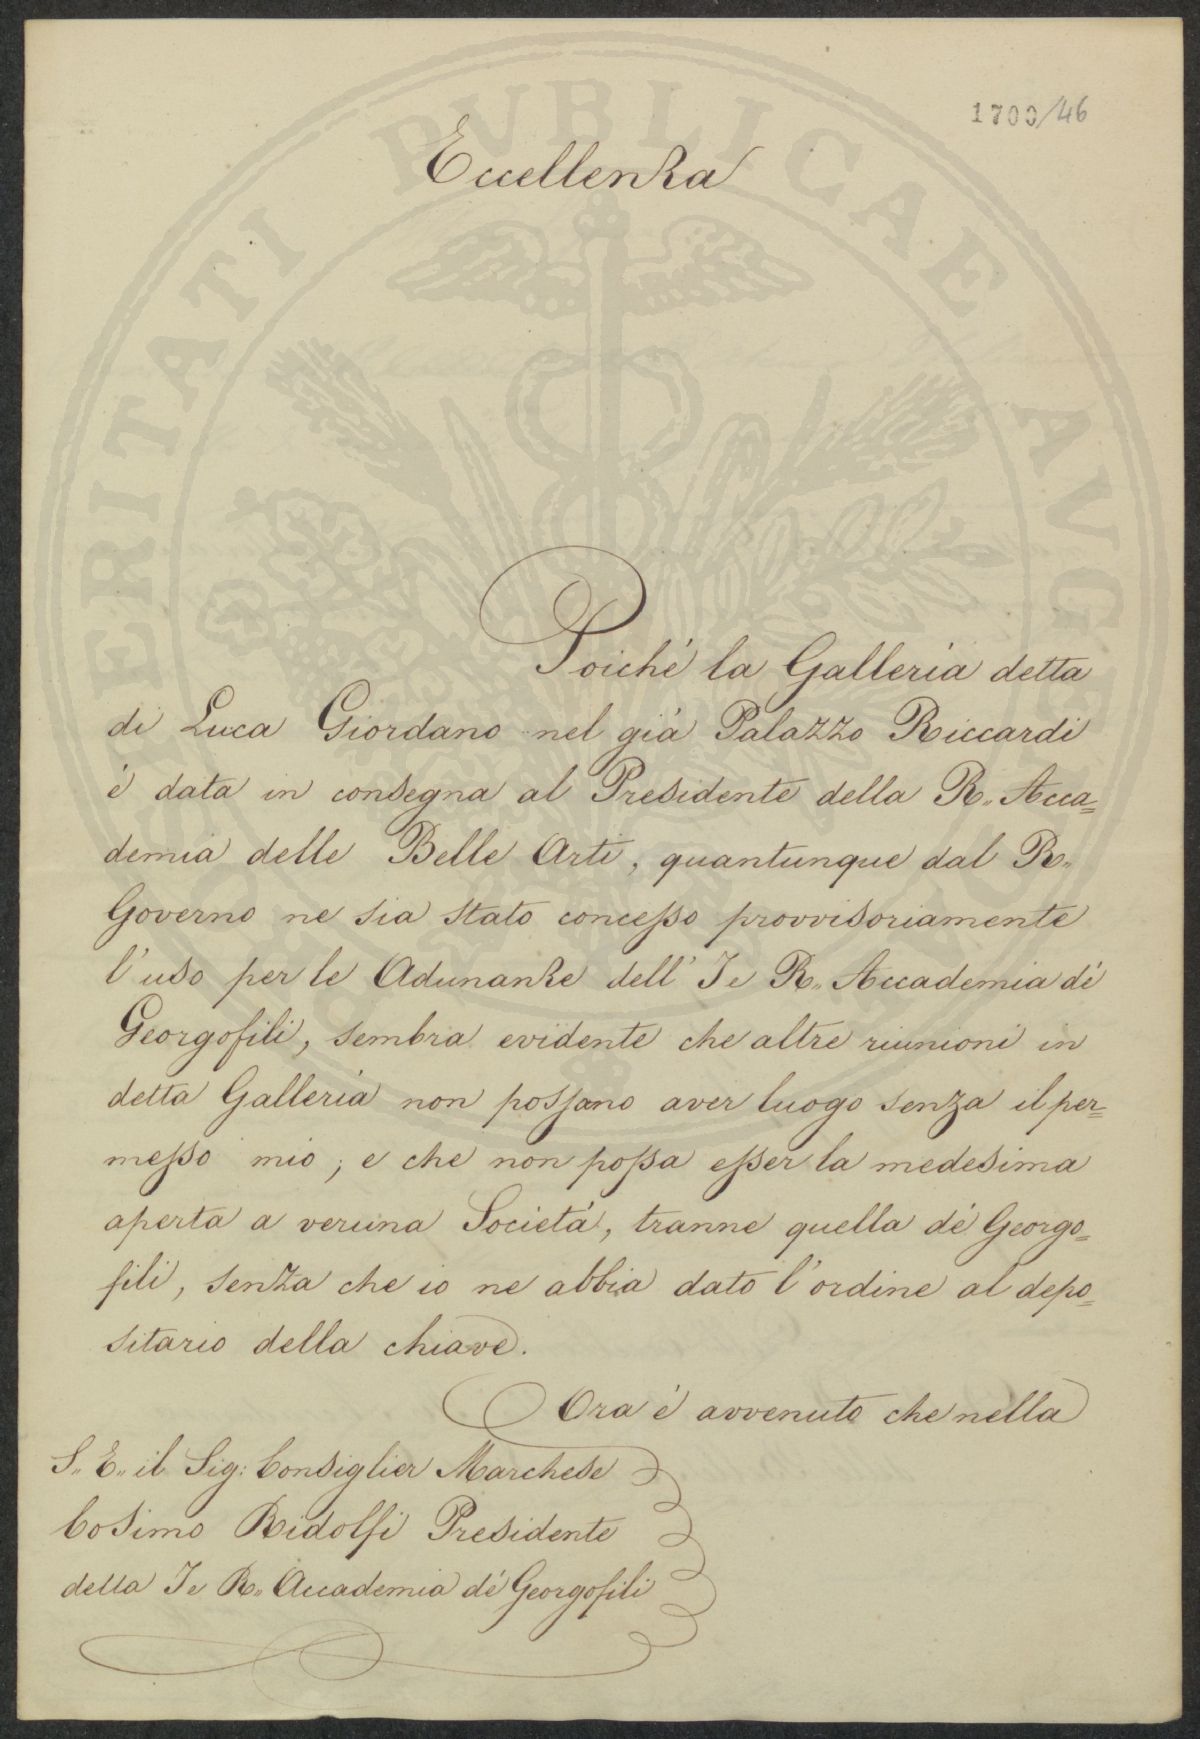 1700/46
Eccellenza
Poiché la Galleria detta
di Luca Giordano nel già Palazzo Riccardi
è data in consegna al Presidente della R.. Acca=
demia delle Belle Arti, quantunque dal R..
Governo ne sia stato concesso provvisoriamente
l'uso per le Adunanze dell' I e R.. Accademia dé
Georgofili, sembra evidente che altre riunioni in
detta Galleria non possano aver luogo senza il per=
messo mio; e che non possa esser la medesima
aperta a veruna Società, tranne quella dé Georgo=
fili, senza che io ne abbia dato l'ordine al depo=
sitario della chiave.
Ora è avvenuto che nella
S.. E.. il Sig: Consiglier Marchese
Cosimo Ridolfi Presidente
della I e R.. Accademia dé Georgofili
PUBLICAE AUG
ERITATI